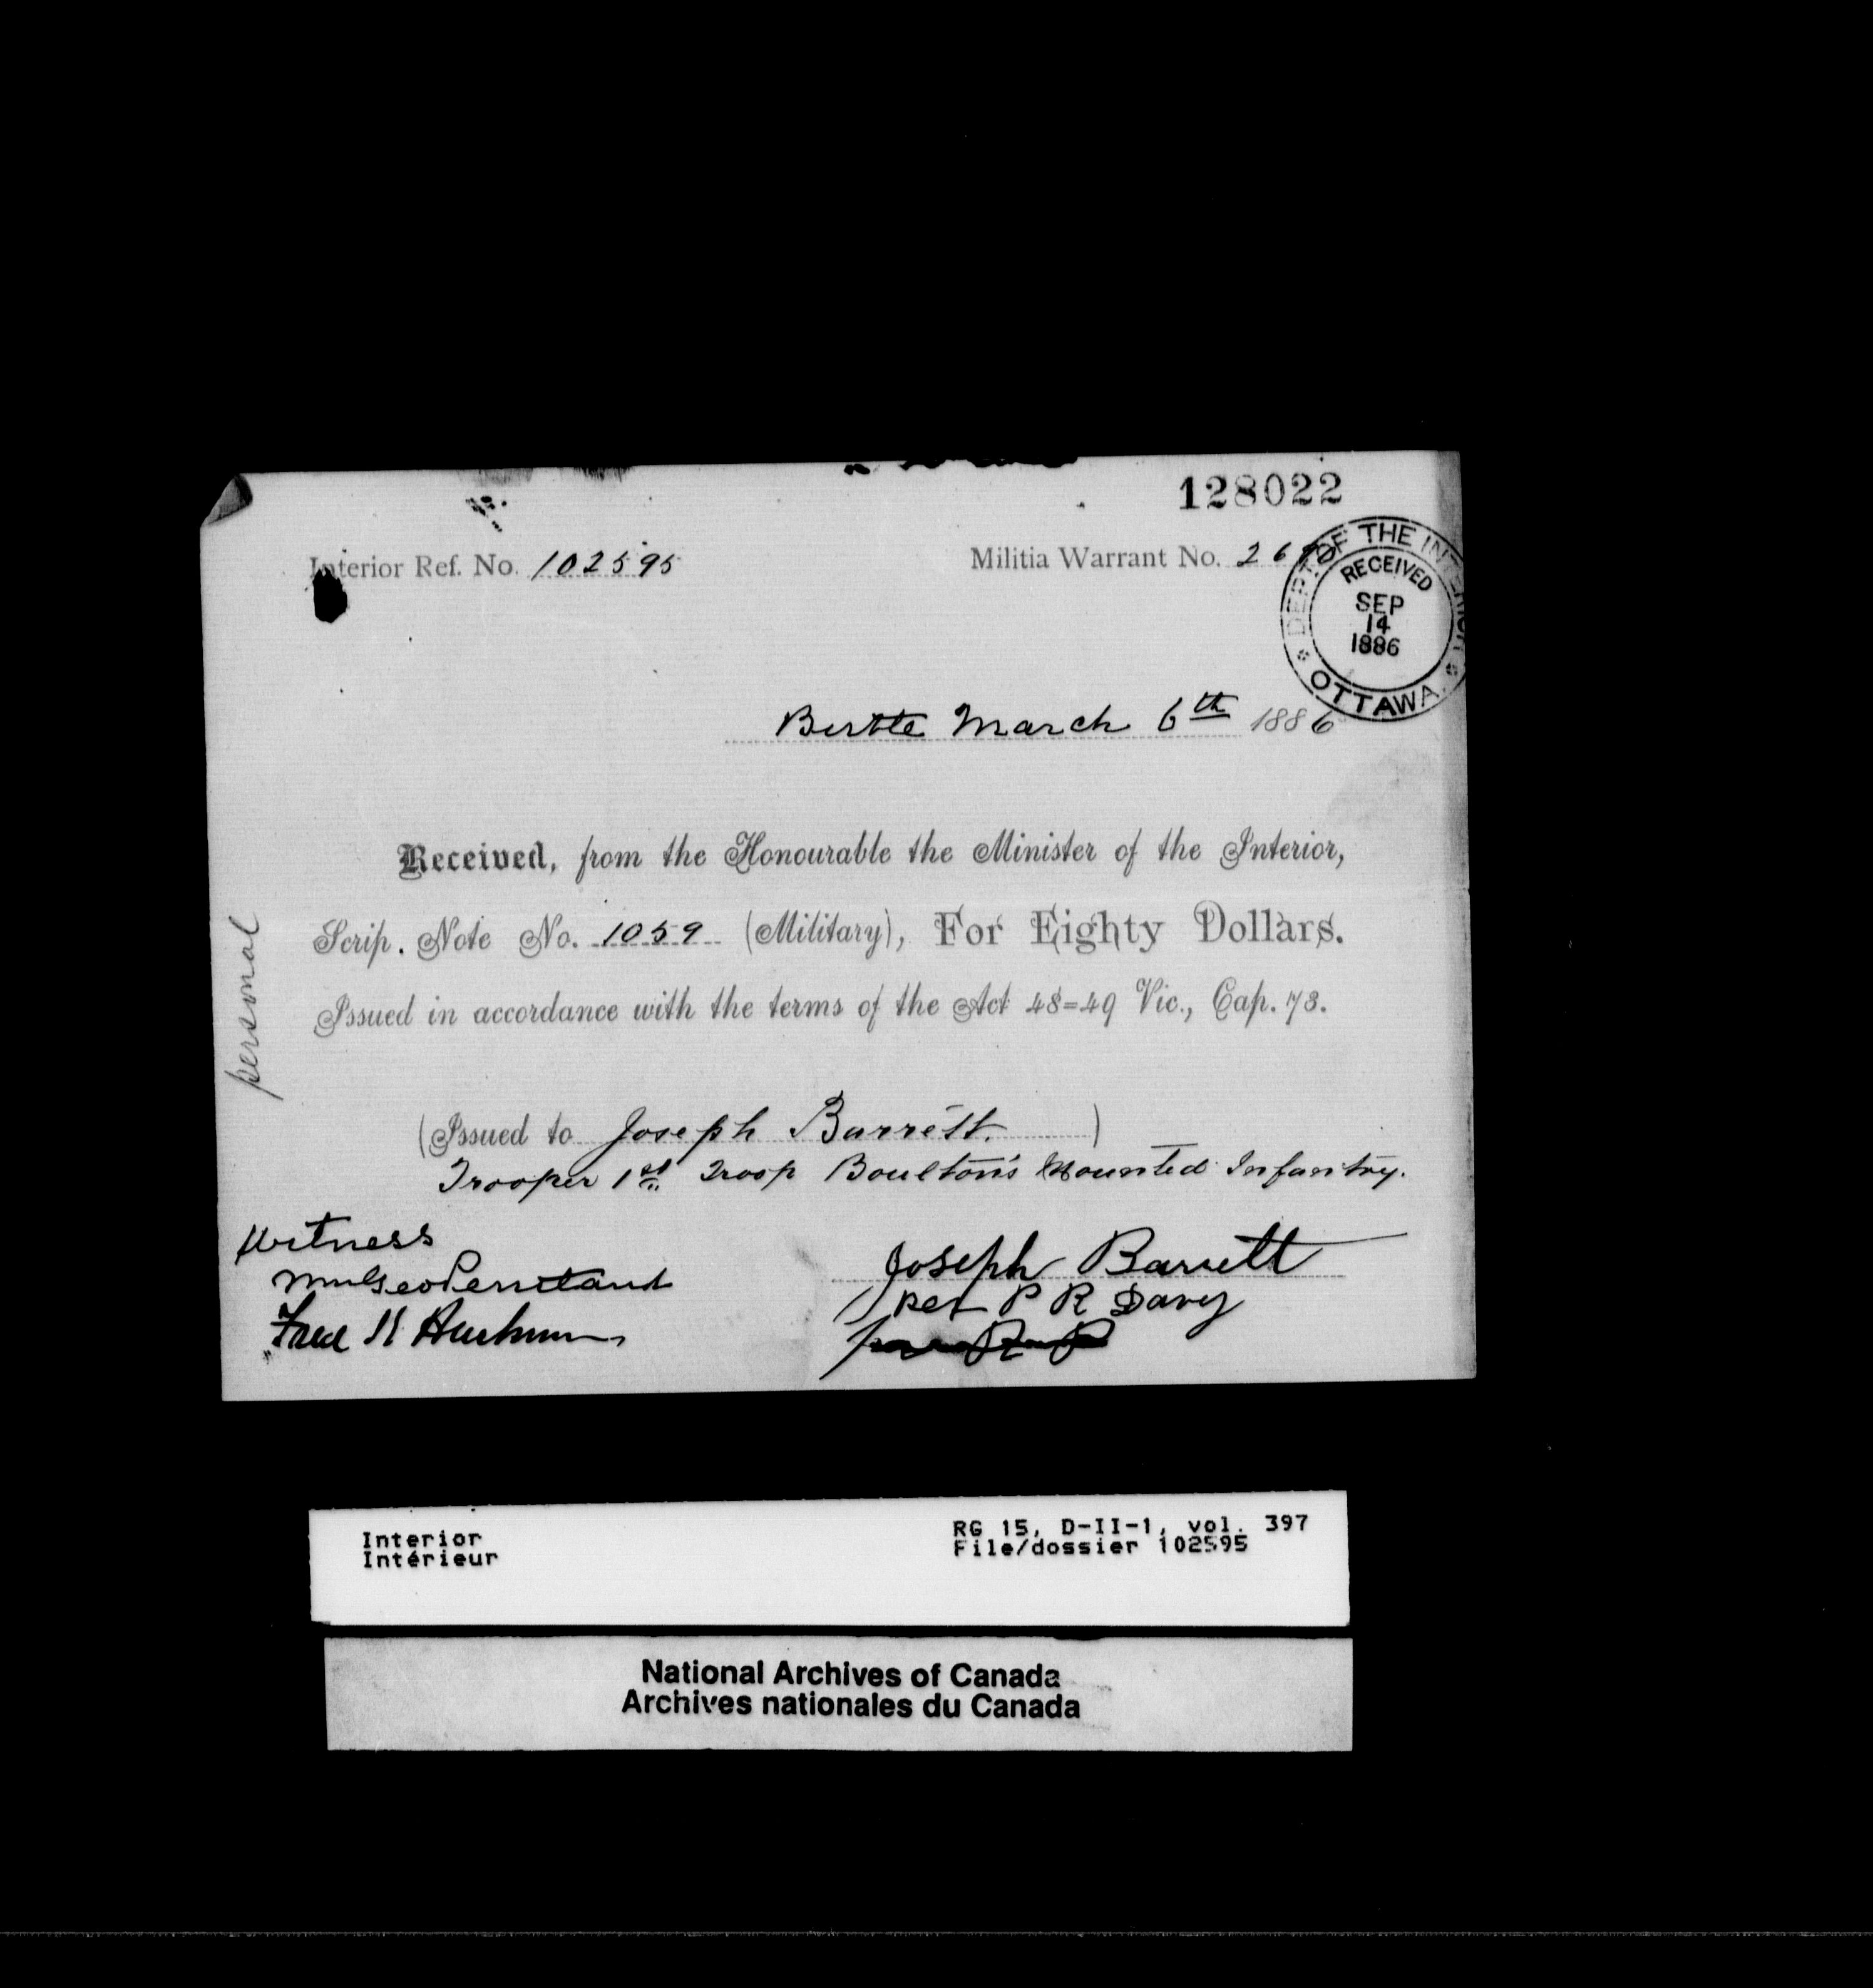 128022
Interior Ref. No. 102595
Militia Warrant No. 26
DEPT. OF THE INTERIOR
RECEIVED
SEP
14
1886
OTTAWA
Birtle March 6th 1886
Received, from the Honourable the Minister of the Interior,
Scrip. Note No. 1059 (Military), For Eighty Dollars.
Issued in accordance with the terms of the Act 48=49 Vic., Cap. 73.
personal
(Issued to Joseph Barrett.)
Trooper 1st Troop Boulton's Mounted Infantry.
Witness
Joseph Barrett
per P R Davy
Fred
Interior
Intérieur
RG 15, D-II-1, vol. 397
File/dossier 102595
National Archives of Canada
Archives nationales du Canada